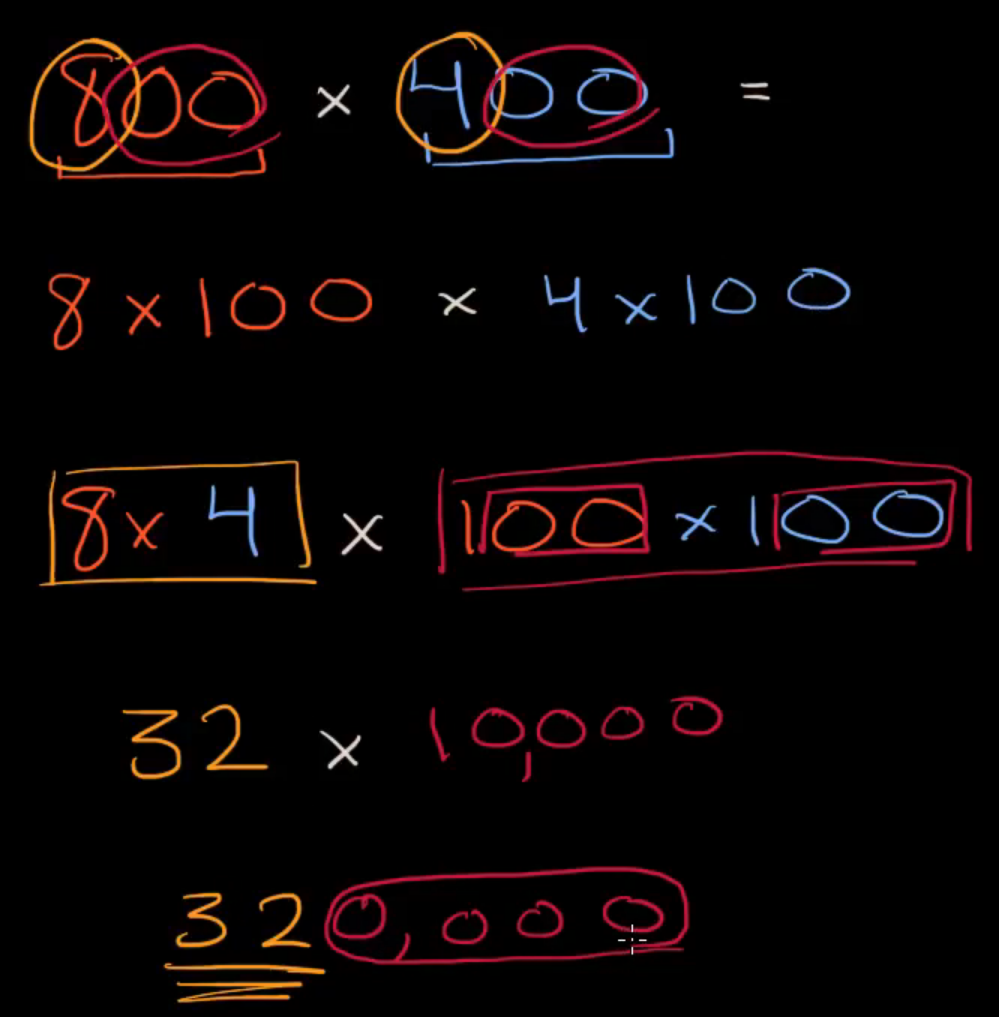 800 × 400 =
8 × 100 × 4 × 100
8 × 4 × 100 × 100
32 × 10,000
320,000